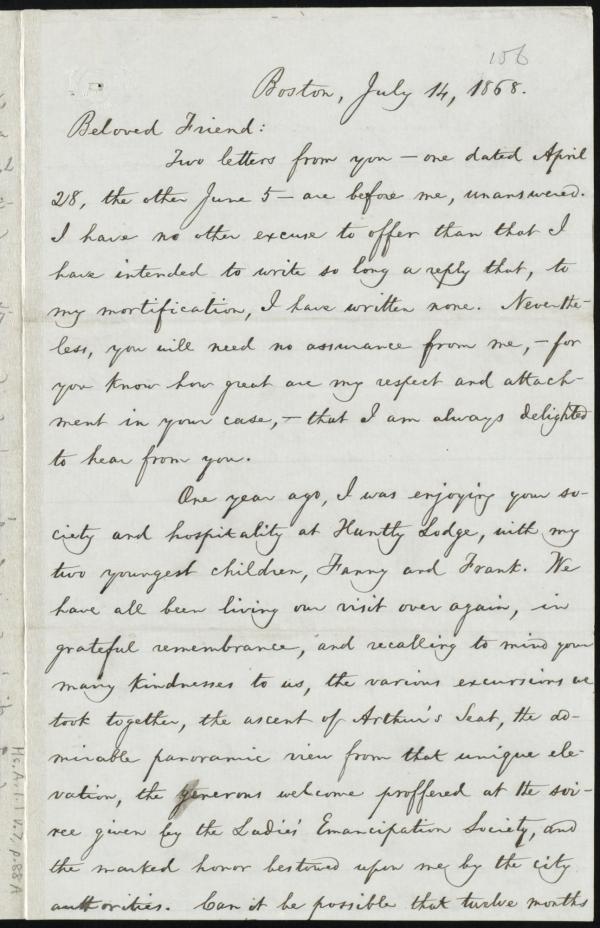 156
Boston, July 14, 1868.
Beloved Friend:
Two letters from you — one dated April
28, the other June 5 — are before me, unanswered.
I have no other excuse to offer than that I
have intended to write so long a reply that, to
my mortification, I have written none. Neverthe-
less, you will need no assurance from me, — for
you know how great are my respect and attach-
ment in your case, — that I am always delighted
to hear from you.
One year ago, I was enjoying your so-
ciety and hospitality at Huntly Lodge, with my
two youngest children, Fanny and Frank. We
have all been living our visit over again, in
grateful remembrance, and recalling to mind your
many kindnesses to us, the various excursions we
took together, the ascent of Arthur's Seat, the ad-
mirable panoramic view from that unique ele-
vation, the generous welcome proffered at the soi-
ree given by the Ladies' Emancipation Society, and
the marked honor bestowed upon me by the city
authorities. Can it be possible that twelve months
Ms. A. 1. 1 v. 7, p. 88 A